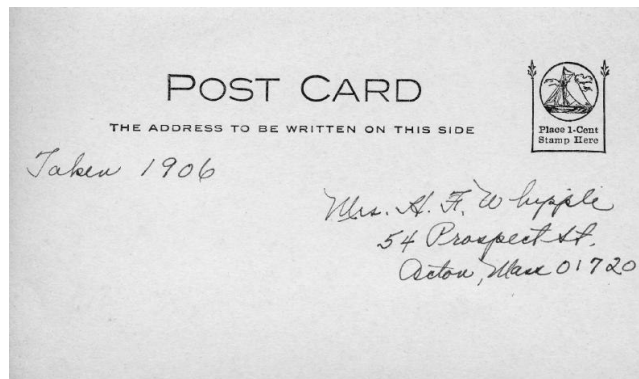 POST CARD
THE ADDRESS TO BE WRITTEN ON THIS SIDE
Place 1-Cent
Stamp Here
Taken 1906
Mrs. H. F. Whipple
54 Prospect St.
Acton, Mass 01720